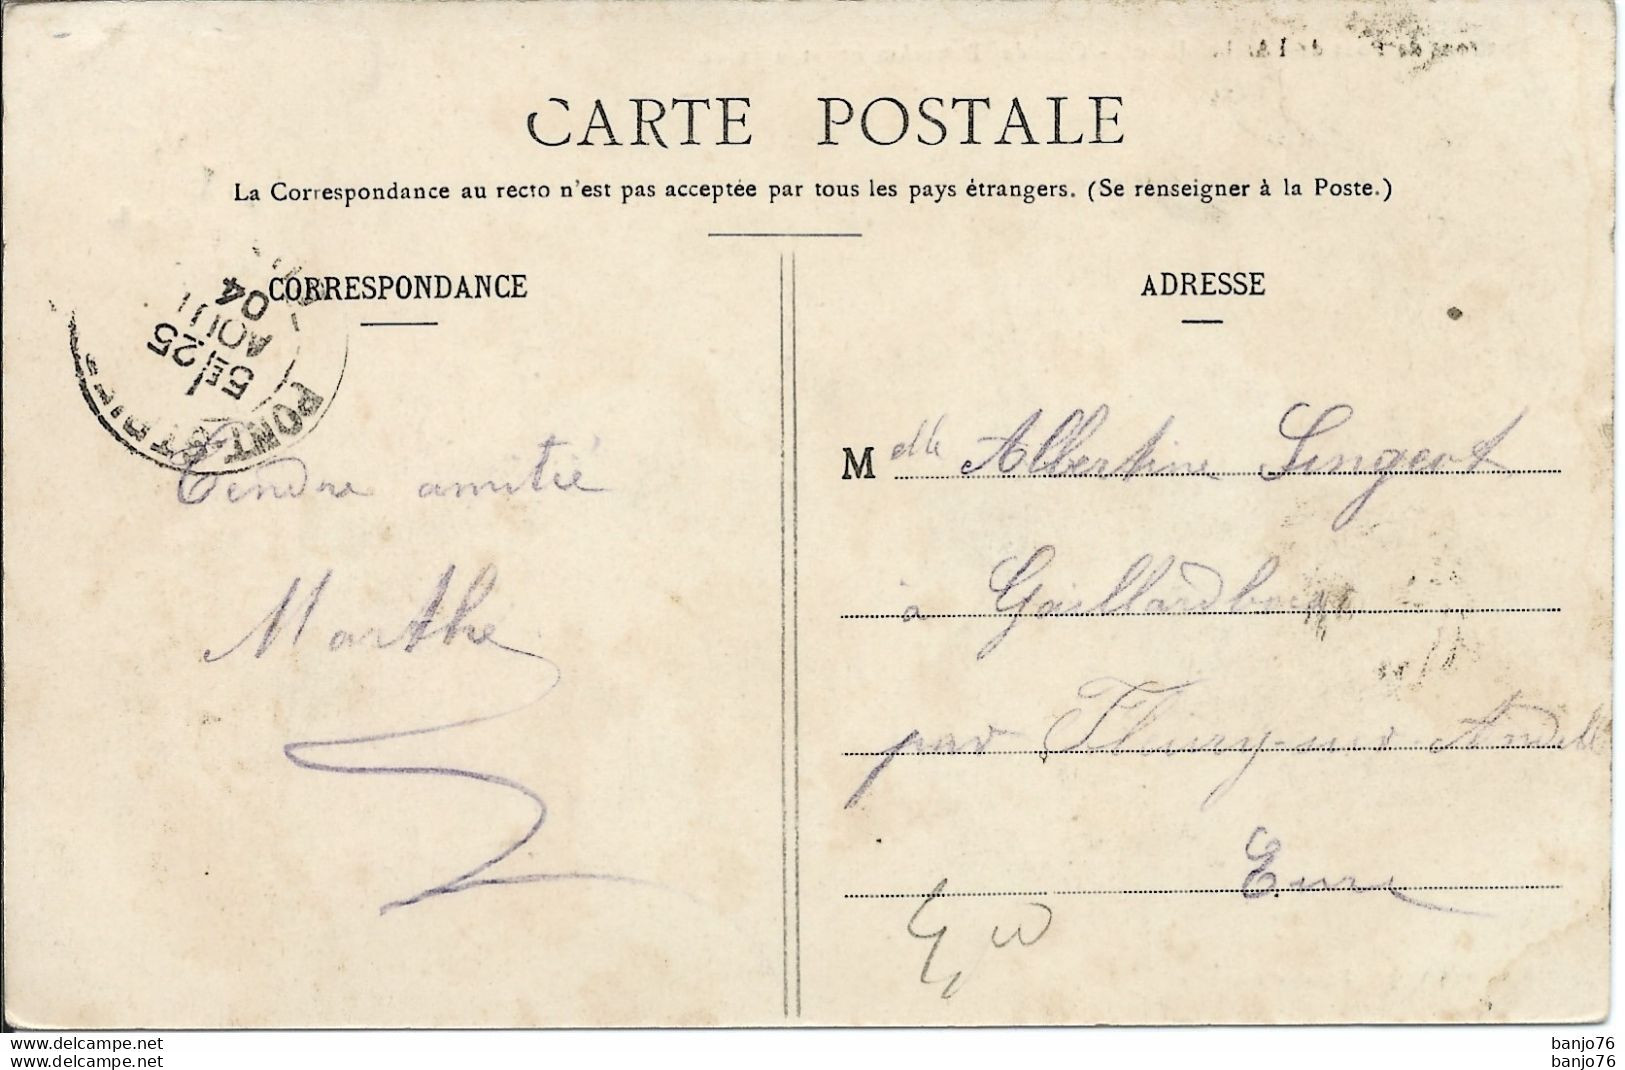 CARTE POSTALE
La Correspondance au recto n'est pas acceptée par tous les pays étrangers. (Se renseigner à la Poste.)
CORRESPONDANCE
ADRESSE
PONT-ST-PI
5E 25
AOUT
04
Tendre amitié
Marthe
Melle Albertine
à Gaillardbois
par Fleury-sur-Andelle
Eure
banjo76
banjo76